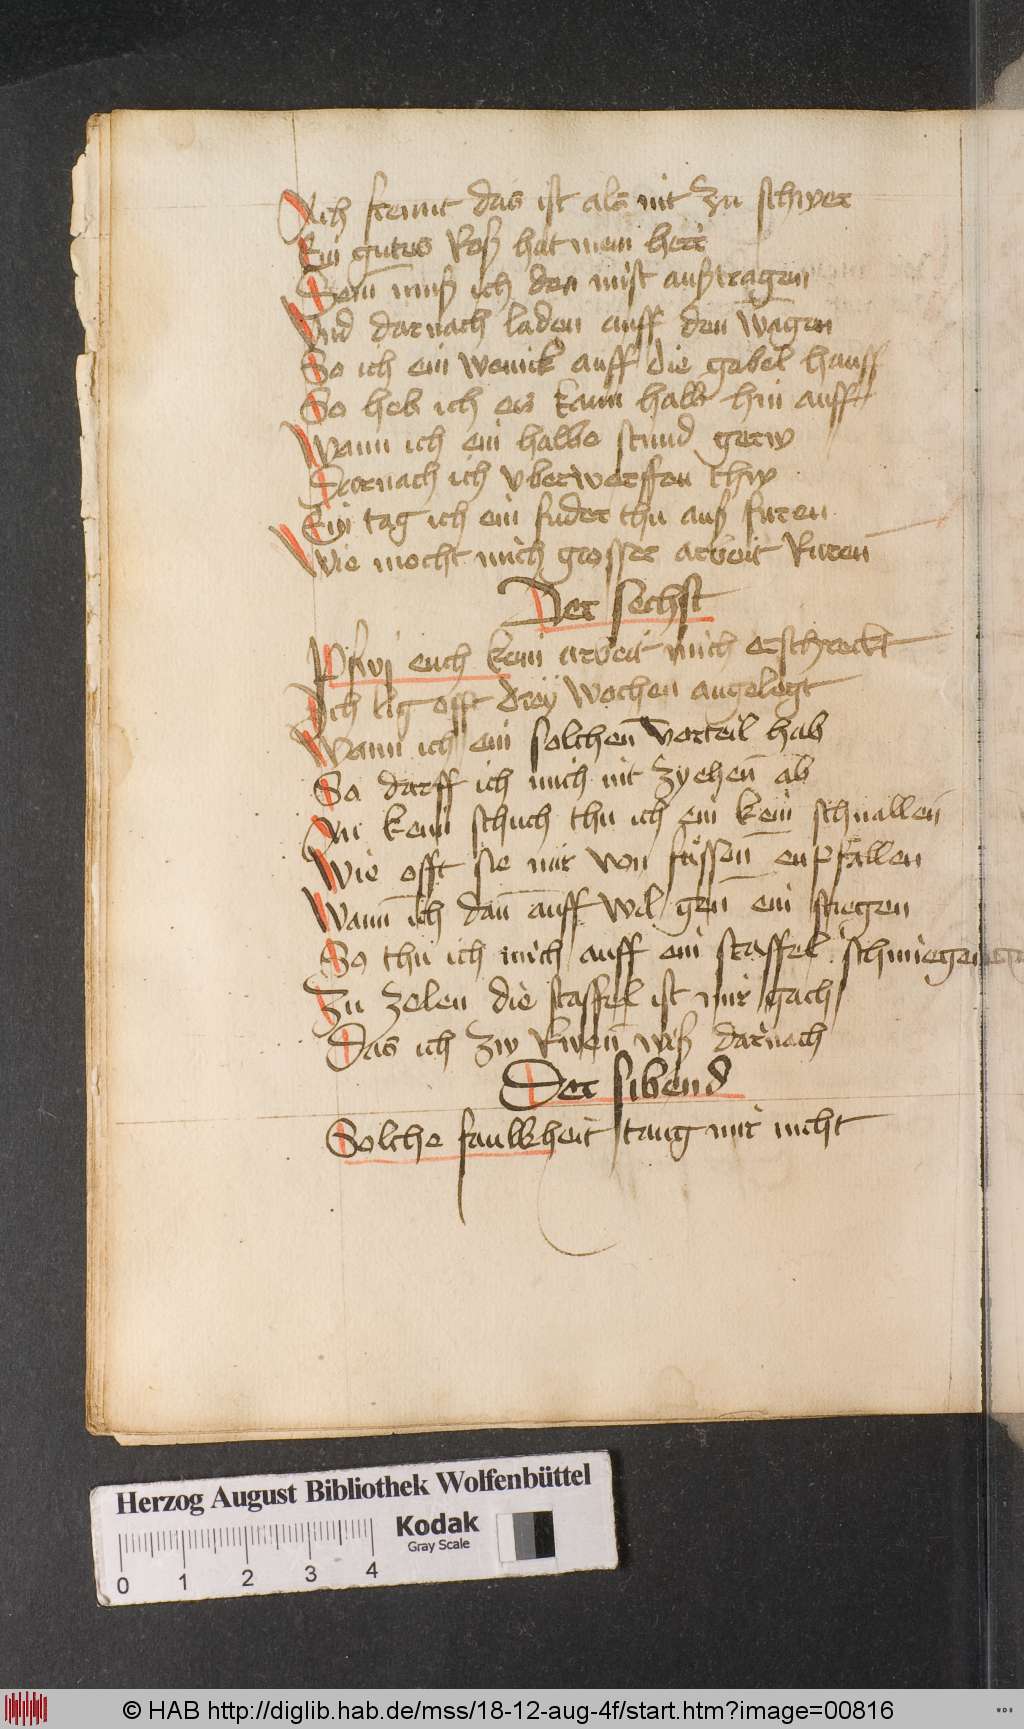 Ach freunt das ist als nit zu schwer
Ein gutes Roß hat mein herr
Dem muß ich den mist außtragen
Vnd darnach laden auff den wagen
So ich ein wenick auff die gabel hauff
So heb ich es kaum halb hin auff
Wann ich ein halbe stund gerw
Darnach ich vberwerffen thw
Ein tag ich ein fuder thu auß furen
Wie mocht mich grosser arbeit Ruren
Der sechst
Pfwj euch kein arbeit mich erschreckt
Ich lig offt drey wochen angelegt
Wann ich ein solchen vorteil hab
So darff ich mich nit zyehen ab
An kein schuch thu ich ein kein schnallen
Wie offt sie mir von füssen enpfallen
Wann ich dan auff wil gen ein stiegen
So thu ich mich auff ein staffel schmiegen
Zu zelen die staffel ist mir gach
Das ich zw Rwen wiß darnach
Der sibend
Solche faulkheit taug mir nicht
Herzog August Bibliothek Wolfenbüttel
Kodak
Gray Scale
0 1 2 3 4
© HAB http://diglib.hab.de/mss/18-12-aug-4f/start.htm?image=00816